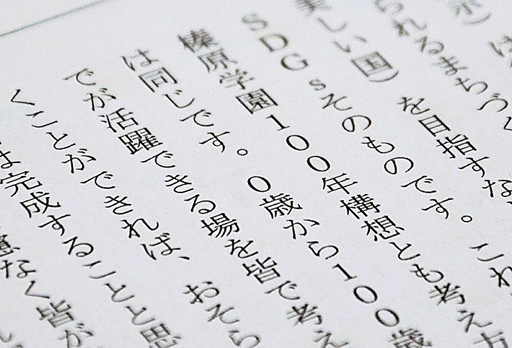 示）は
られるまちづく
美しい国）を目指すな
SDGsそのものです。これ
榛原学園100年構想とも考え方
は同じです。0歳から100歳
でが活躍できる場を皆で考え
くことができれば、おそら
は完成することと思
なく皆が